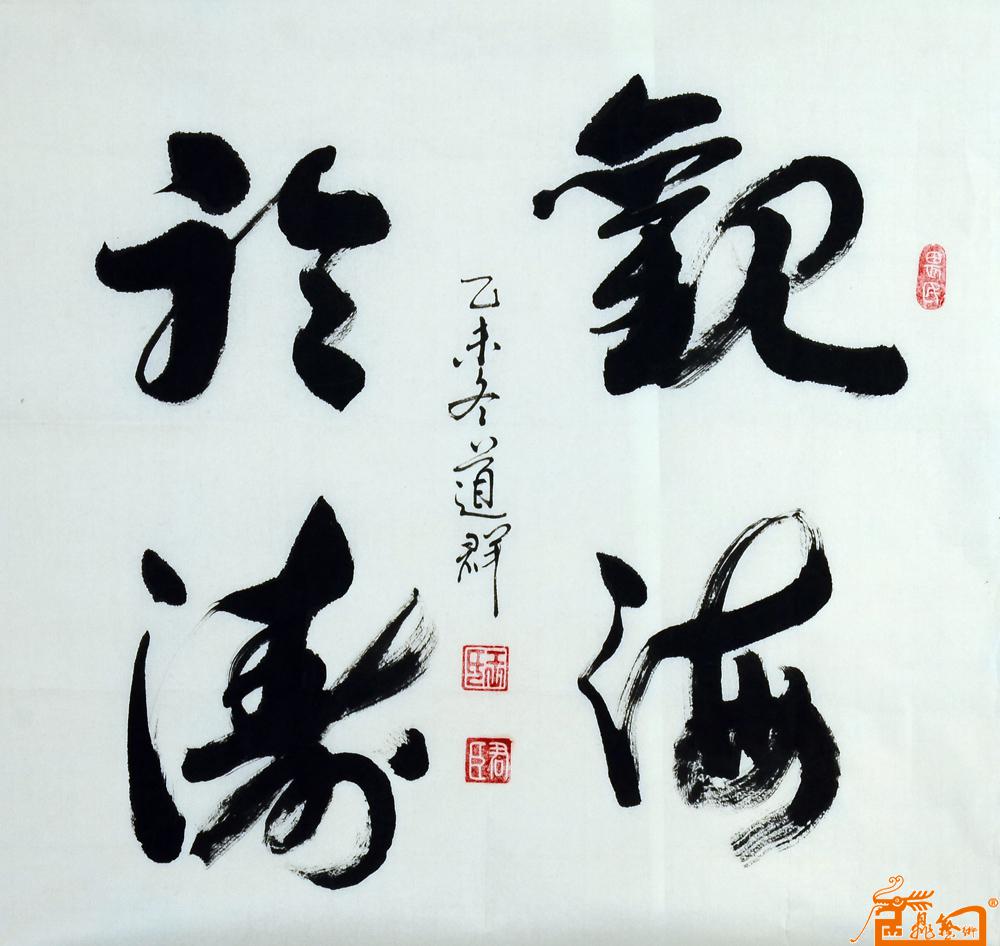 觀海
於濤
乙未冬道群